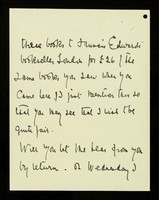 these books to Francis Edwards
bookseller London for £26 / the
same books you saw when you
came here & I just mention this so
that you may see that I wish to be
quite fair.
Will you let me hear from you
by return. On Wednesday I